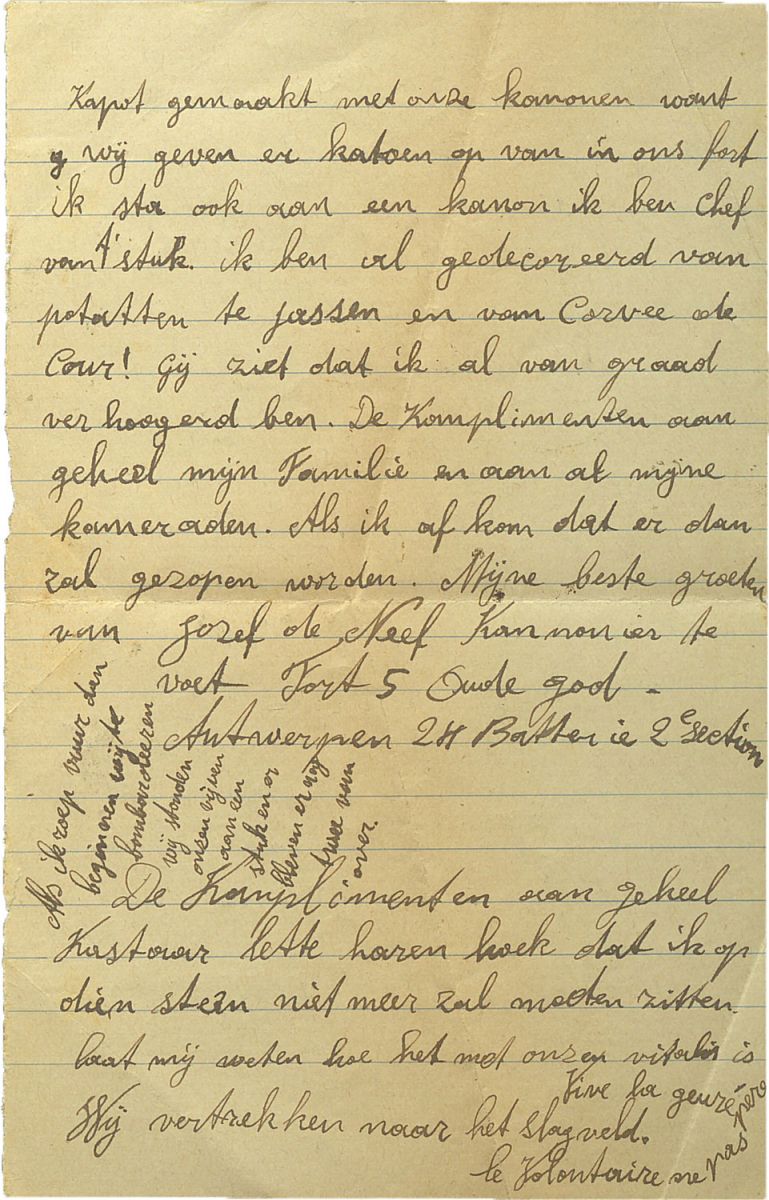 Kapot gemaakt met onze kanonen want
g wij geven er katoen op van in ons fort
ik sta ook aan een kanon ik ben Chef
van t' stuk. ik ben al gedecoreerd van
patatten te jassen en vam Corvee de
Cour! Gij ziet dat ik al van graad
verhoogerd ben. De Komplimenten aan
geheel mijn Familie en aan al mijne
kameraden. Als ik af kom dat er dan
zal gezopen worden. Mijne beste groeten
van Jozef de Neef Kannonier te
voet Fort 5 Oude god -
Antwerpen 24 Batterie 2e section
Als ik roep vuur dan
beginnen wij te
bombardeeren
wij stonden
onzen vijven
aan een
stuk en er
bleven er nog
twee van
over.
De Komplimenten aan geheel
Kastaar lette haren hoek dat ik op
dien steen niet meer zal moeten zitten.
laat mij weten hoe het met onzen vitalis is
Wij vertrekken naar het slagveld.
Vive la geuré
le Volontaire ne pas pere